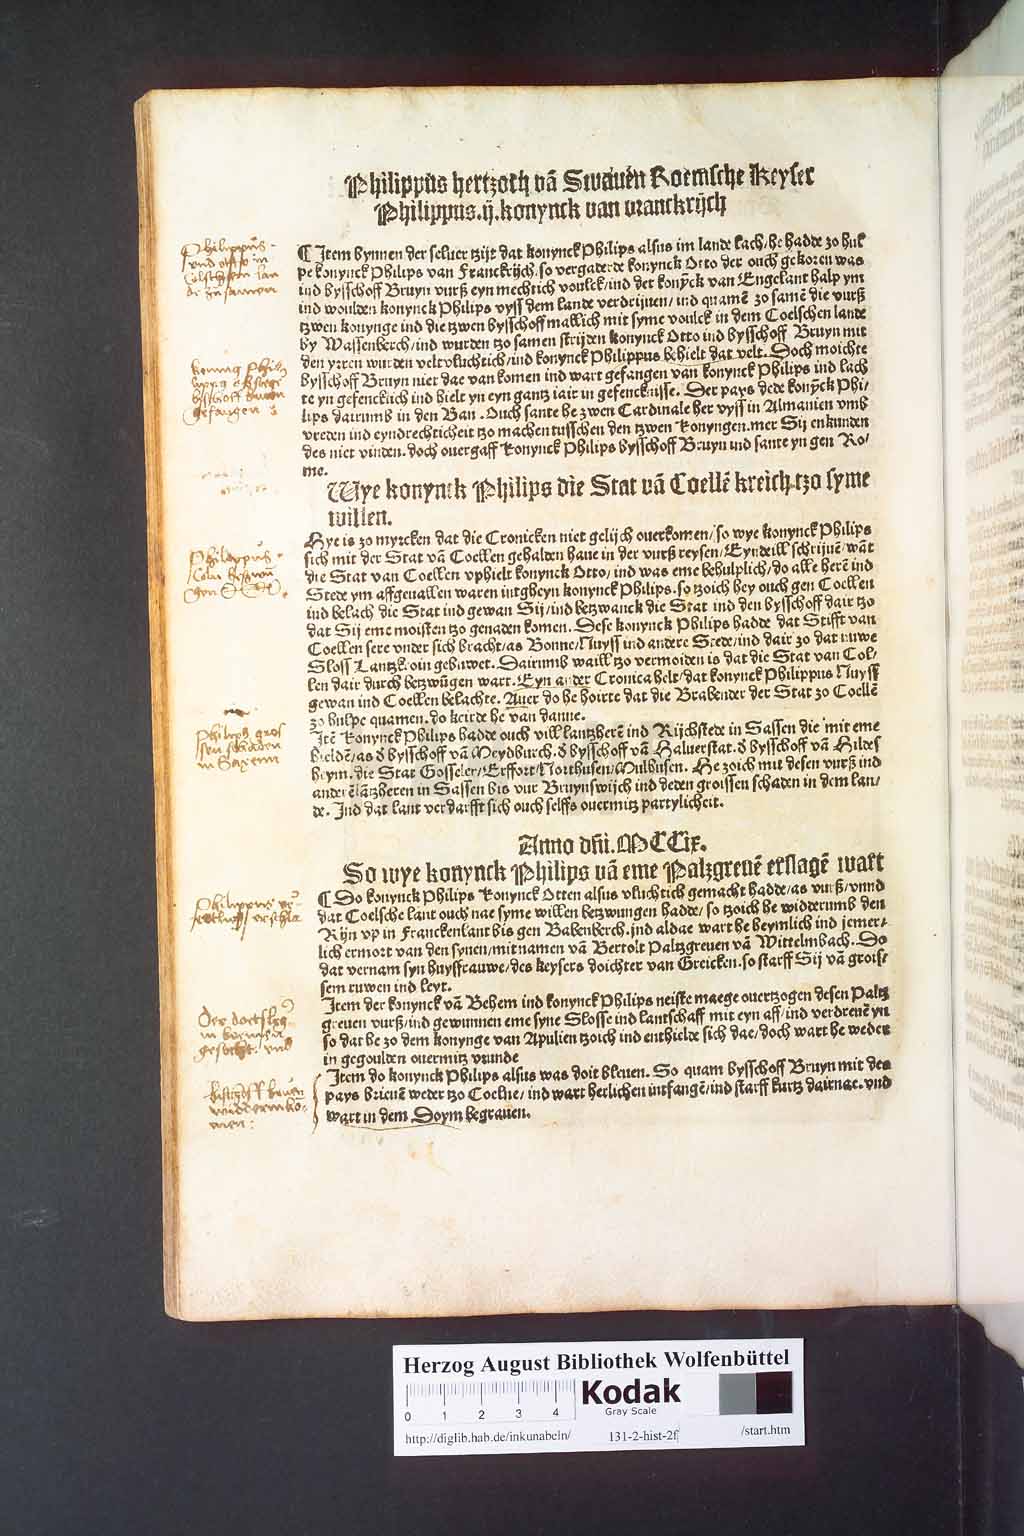 Philippus hertzoth vā Swauen Roemsche keyser
Philippus.ij.konynck van vranckrijch
Philippus
vnd otto in
¶ Item bynnen der seluer tzijt dat konynck Philips alsus im lande lach/he hadde zo hul
pe konynck Philips van Franckrijch.so vergaderde konynck Otto der ouch gekoren was
ind bysschoff Bruyn vurß eyn mechtich voulck/ind der konȳck van Engelant halp ym
ind woulden konynck Philips vyss dem lande verdrijuen/ind quamē zo samē die vurß
tzwen konynge ind die tzwen bysschoff mallich mit syme voulck in dem Coelschen lande
by Wassenberch/ind wurden tzo samen strijden konynck Otto ind bysschoff Bruyn mit
den yrren wurden veltvluchtich/ind konynck Philippus behielt dat velt. Doch moichte
bysschoff Bruyn niet dae van komen ind wart gefangen van konynck Philips ind lach
te yn gefencklich ind hielt yn eyn gantz iair in gefencknisse. Der pays dede konȳck Phi/
lips dairumb in den Ban. Ouch sante he zwen Cardinale her vyss in Almanien vmb
vreden ind eyndrechticheit tzo machen tusschen den tzwen konyngen.mer Sij enkunden
des niet vinden.doch ouergaff konynck Philips bysschoff Bruyn ind sante yn gen Ro/
me.
gefangen
Wye konynck Philips die Stat vā Coellē kreich tzo syme
willen.
Hye is zo myrcken dat die Cronicken niet gelijch ouerkomen/so wye konynck Philips
sich mit der Stat vā Coellen gehalden haue in der vurß reysen/Eyndeill schrijuē/wāt
die Stat van Coellen vphielt konynck Otto/ind was eme behulplich/do alle herē ind
Stede ym affgeuallen waren intgheyn konynck Philips.so tzoich hey ouch gen Coellen
ind belach die Stat ind gewan Sij/ind betzwanck die Stat ind den bysschoff dair tzo
dat Sij eme moisten tzo genaden komen. Dese konynck Philips hadde dat Stifft van
Coellen sere vnder sich bracht/as Bonne/Nuyss ind andere Stede/ind dair zo dat nuwe
Sloss Lantzkroin gebuwet. Dairumb waill tzo vermoiden is dat die Stat van Col/
len dair durch betzwūgen wart. Eyn ander Cronica helt/dat konynck Philippus Nuyss
gewan ind Coellen belachte. Auer do he hoirte dat die Brabender der Stat zo Coellē
zo hulpe quamen.do keirde he van danne.
Philippus
Itē konynck Philips hadde ouch vill lantzherē ind Rijchstede in Sassen die mit eme
hieldē/as d bysschoff vā Meydburch.d bysschoff vā Haluerstat.d bysschoff vā Hildes
heym.die Stat Gosseler/Erffort/Northusen/Mulhusen. He zoich mit desen vurß ind
anderē lātzheren in Sassen bis vur Bruynswijch ind deden groissen schaden in dem lan/
de. Ind dat lant verdarfft sich ouch selffs ouermitz partylicheit.
Philips gros
sen schaden
in Saxenn
Anno dñi.MCCix.
So wye konynck Philips vā eme Palzgreuē erslagē wart
¶ Do konynck Philips konynck Otten alsus vluchtich gemacht hadde/as vurß/vnnd
dat Coelsche lant ouch nae syme willen betzwungen hadde/so tzoich he widderumb den
Rijn vp in Franckenlant bis gen Babenberch.ind aldae wart he heymlich ind iemer/
lich ermort van den synen/mit namen vā Bertolt Paltzgreuen vā Wittelmbach. Do
dat vernam syn huysfrauwe/des keysers doichter van Greicken.so starff Sij vā groif/
sem ruwen ind leyt.
Philippus
Item der konynck vā Behem ind konynck Philips neiste maege ouertzogen desen Paltz
greuen vurß/ind gewunnen eme syne Slosse ind lantschaff mit eyn aff/ind verdreuē yn
so dat he zo dem konynge van Apulien tzoich ind enthielde sich dae/doch wart he weder
in gegoulden ouermitz vrunde
Item do konynck Philips alsus was doit bleuen. So quam bysschoff Bruyn mit des
pays brieuē weder tzo Coelne/ind wart herlichen intfangē/ind starff kurtz dairnae.vnd
wart in dem Doym begrauen.
Herzog August Bibliothek Wolfenbüttel
0 1 2 3 4
Kodak
Gray Scale
http://diglib.hab.de/inkunabeln/ 131-2-hist-2f /start.htm